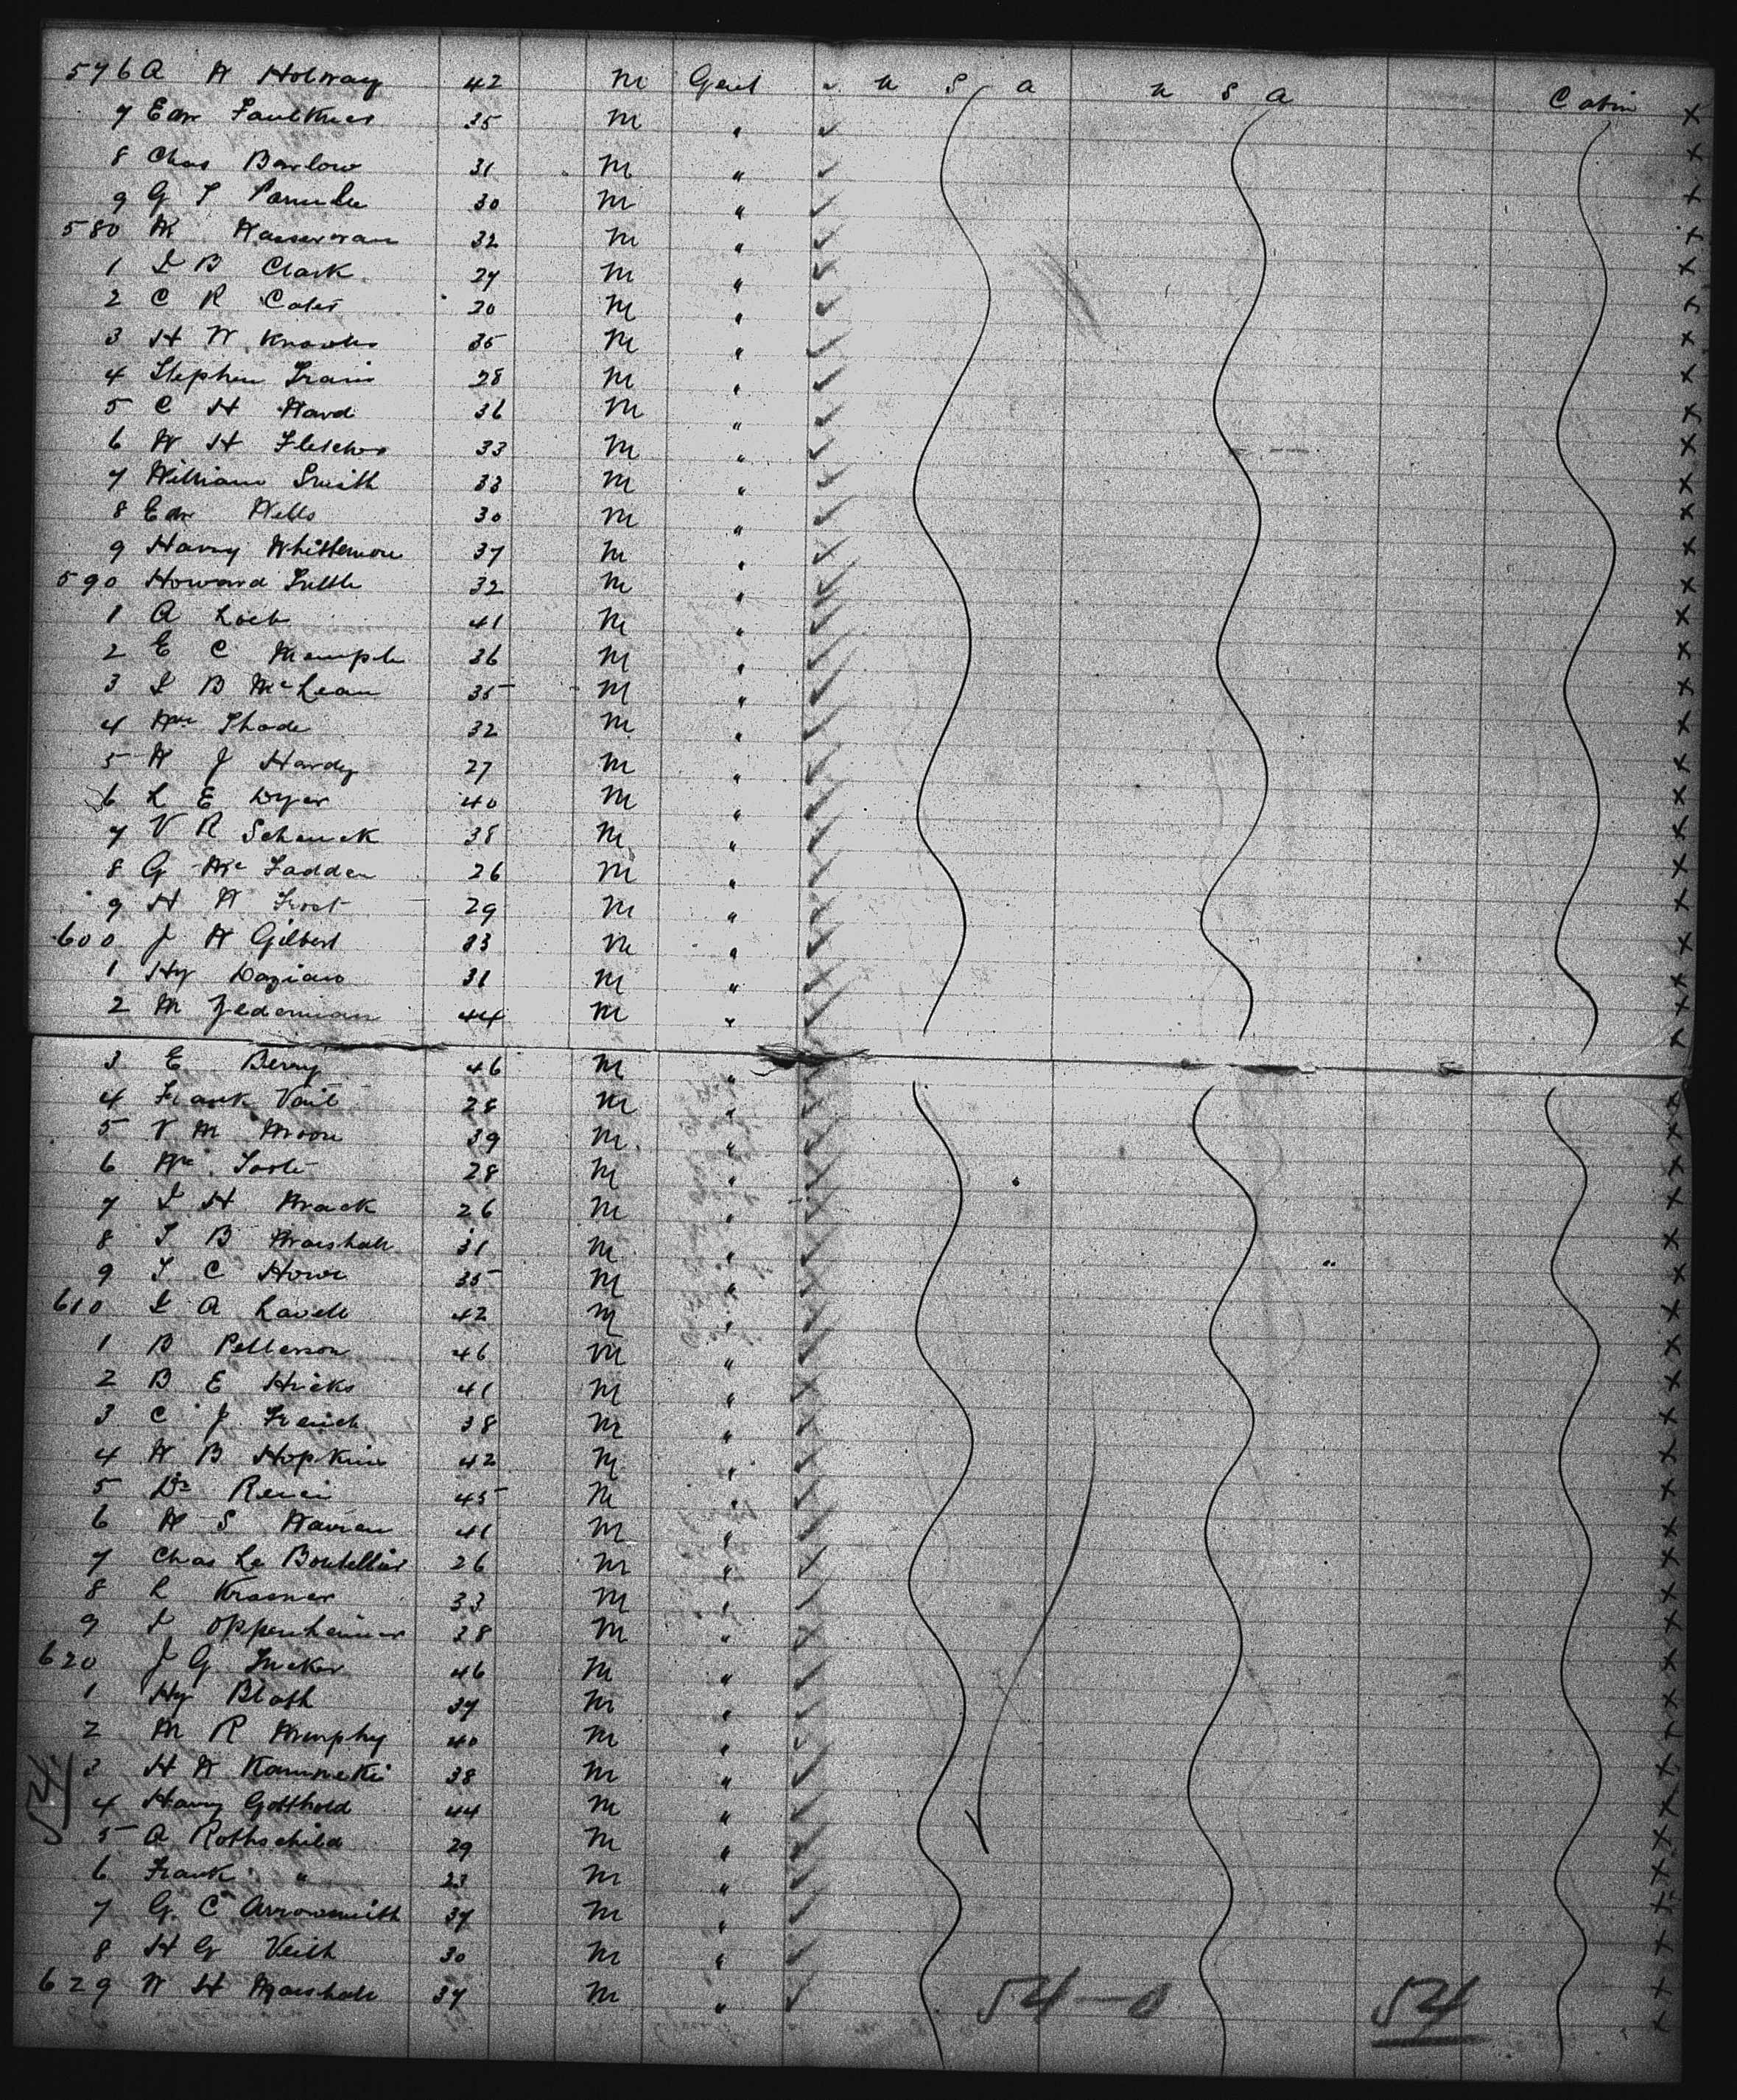 576 A W Holway 42 m Gent ✓ U S A U S A Cabin x
7 Edw Faulkner 35 m " ✓ x
8 Chas Barlow 31 m " ✓ x
9 G T Parmlee 30 m " ✓ x
580 M Wasserman 32 m " ✓ x
1 L B Clark 27 m " ✓ x
2 C R Coles 20 m " ✓ x
3 H W Knowles 35 m " ✓ x
4 Stephen Travis 28 m " ✓ x
5 C H Ward 36 m " ✓ x
6 W H Fletcher 33 m " ✓ x
7 William Smith 33 m " ✓ x
8 Edw Wells 30 m " ✓ x
9 Harry Whittemore 37 m " ✓ x
590 Howard Tuttle 32 m " ✓ x
1 A Loeb 41 m " ✓ x
2 E C 36 m " ✓ x
3 L B McLean 35 m " ✓ x
4 Wm Thode 32 m " ✓ x
5 W J Hardy 27 m " ✓ x
6 L E Dyer 40 m " ✓ x
7 V R Schenck 38 m " ✓ x
8 G McFadden 26 m " ✓ x
9 H W Frost 29 m " ✓ x
600 J W Gilbert 33 m " ✓ x
1 Hy Dazian 31 m " ✓ x
2 M 44 m " ✓ x
3 E Berry 46 m " ✓ x
4 Frank Vail 28 m " ✓ x
5 V M Moore 39 m " ✓ x
6 Wm 28 m " ✓ x
7 L H Mack 26 m " ✓ x
8 T B Marshall 31 m " ✓ x
9 T C Howe 35 m " ✓ x
610 L A Lavell 42 m " ✓ x
1 B Petterson 46 m " ✓ x
2 B E Hicks 41 m " x x
3 C J French 38 m " ✓ x
4 W B Hopkins 42 m " ✓ x
5 Dr 45 m " ✓ x
6 W S Warren 41 m " ✓ x
7 Chas Le Boutellier 26 m " ✓ x
8 L Kramer 33 m " ✓ x
9 L Oppenheimer 28 m " ✓ x
620 J G Tucker 46 m " ✓ x
1 Hy Blath 37 m " ✓ x
2 M R Murphy 40 m " ✓ x
3 H W Kaminski 38 m " ✓ x
54
4 Harry Gotthold 44 m " ✓ x
5 A Rothschild 29 m " ✓ x
6 Frank " 23 m " ✓ x
7 G C Arrowsmith 37 m " ✓ x
8 H G Veith 30 m " ✓ x
629 W H Marshall 37 m " ✓ x
54 – 0 54